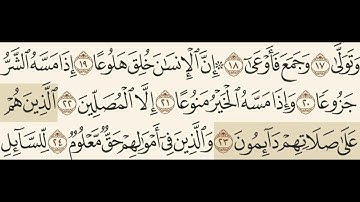 وَتَوَلَّىٰ ١٧ وَجَمَعَ فَأَوْعَىٰٓ ١٨ ۞ إِنَّ ٱلْإِنسَٰنَ خُلِقَ هَلُوعًا ١٩ إِذَا مَسَّهُ ٱلشَّرُّ
جَزُوعًا ٢٠ وَإِذَا مَسَّهُ ٱلْخَيْرُ مَنُوعًا ٢١ إِلَّا ٱلْمُصَلِّينَ ٢٢ ٱلَّذِينَ هُمْ
عَلَىٰ صَلَاتِهِمْ دَآئِمُونَ ٢٣ وَٱلَّذِينَ فِىٓ أَمْوَٰلِهِمْ حَقٌّ مَّعْلُومٌ ٢٤ لِّلسَّآئِلِ